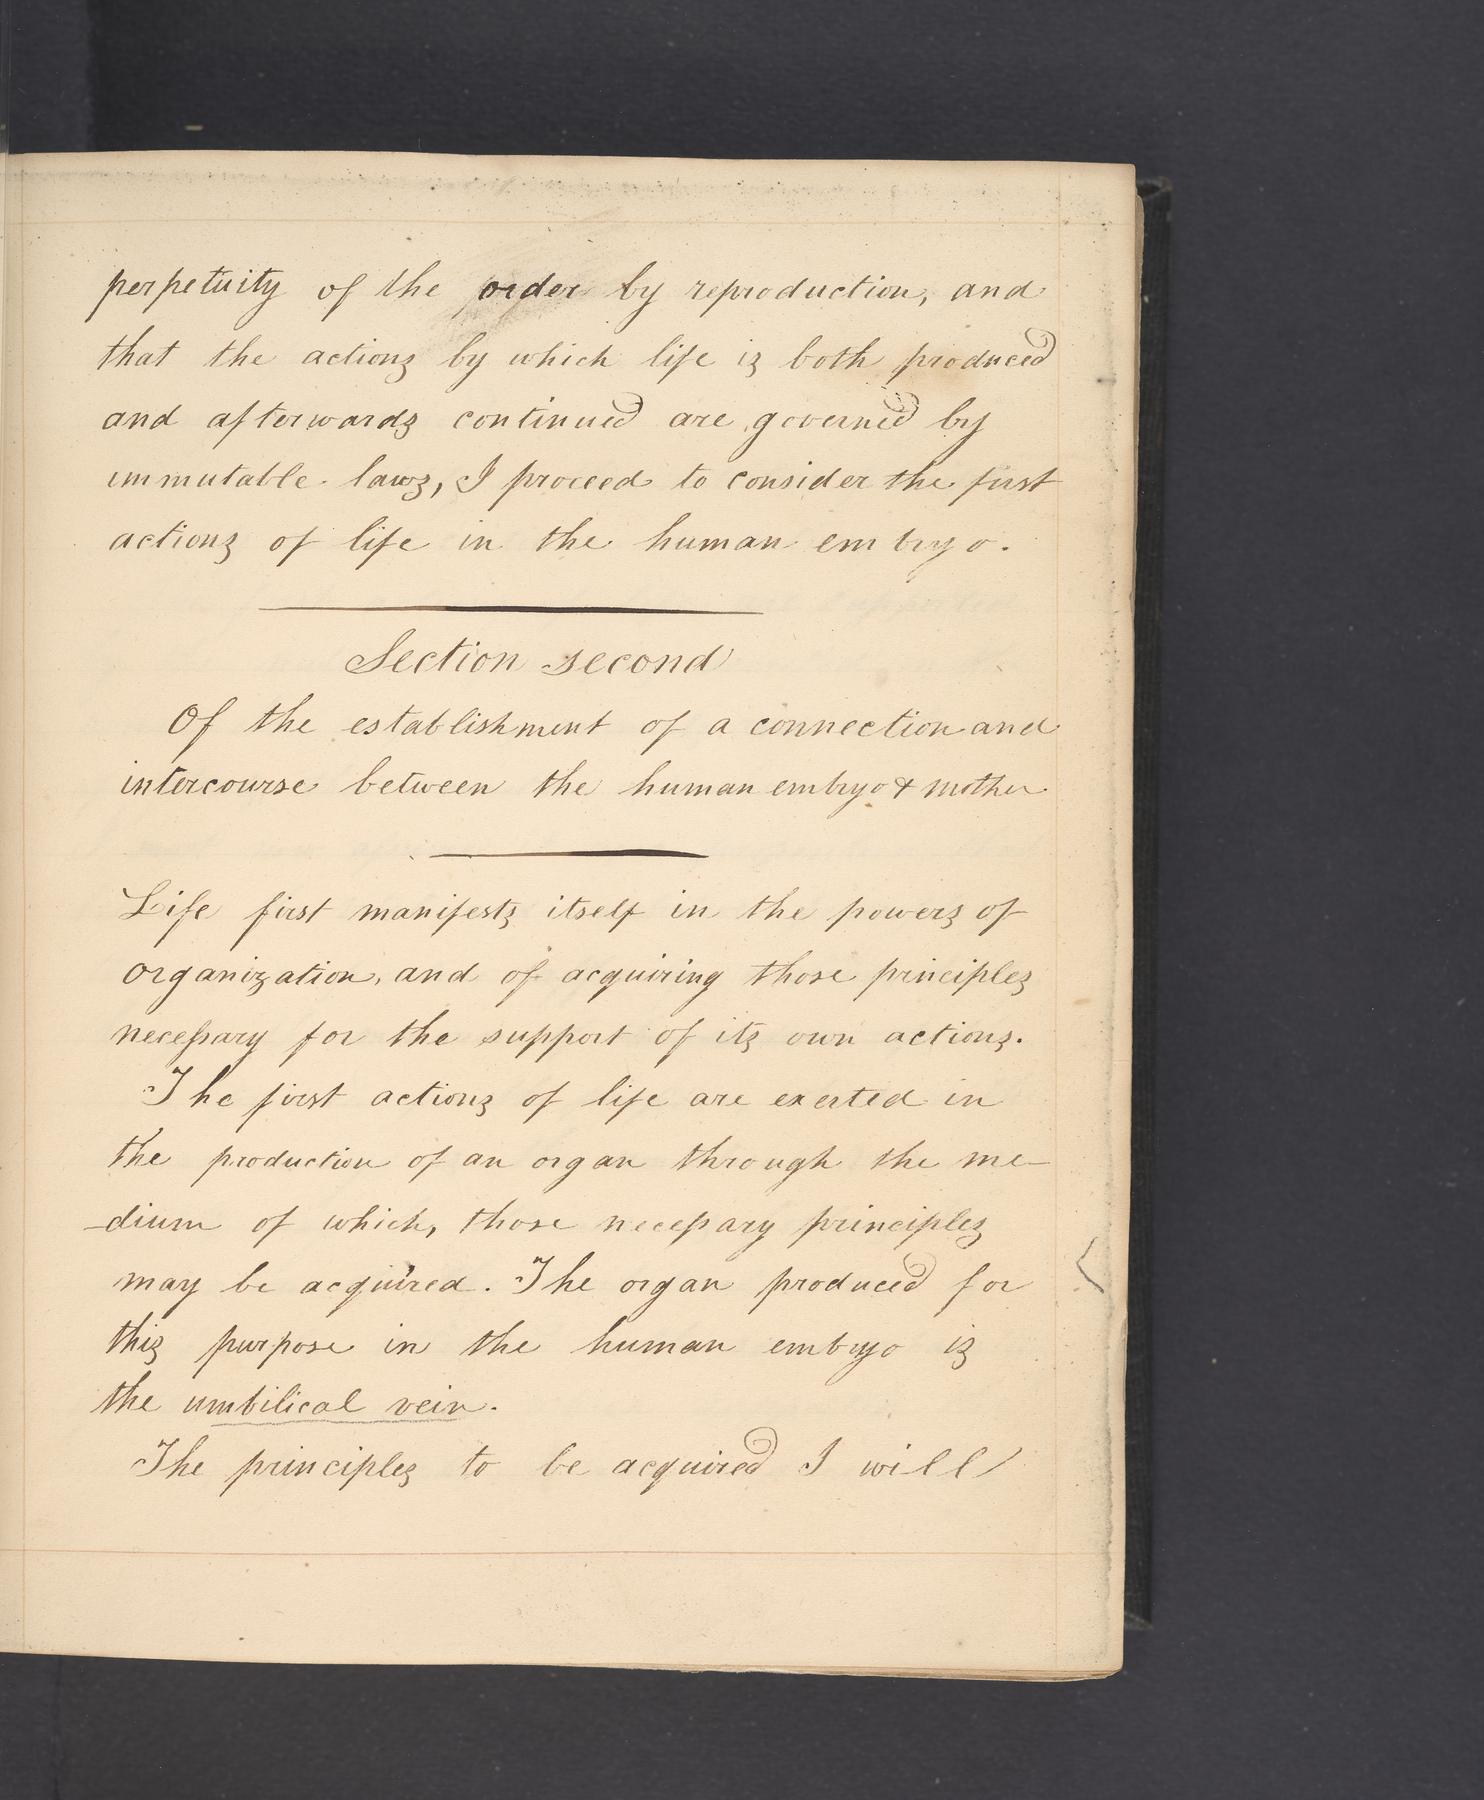 perpetuity of the order by reproduction, and
that the actions by which life is both produced
and afterwards continued are governed by
immutable laws, I proceed to consider the first
actions of life in the human embryo.
Section second
Of the establishment of a connection and
intercourse between the human embryo & mother
Life first manifests itself in the powers of
organization, and of acquiring those principles
necessary for the support of its own actions.
The first actions of life are exerted in
the production of an organ through the me-
-dium of which, those necessary principles
may be acquired. The organ produced for
this purpose in the human embryo is
the umbilical vein.
The principles to be acquired I will